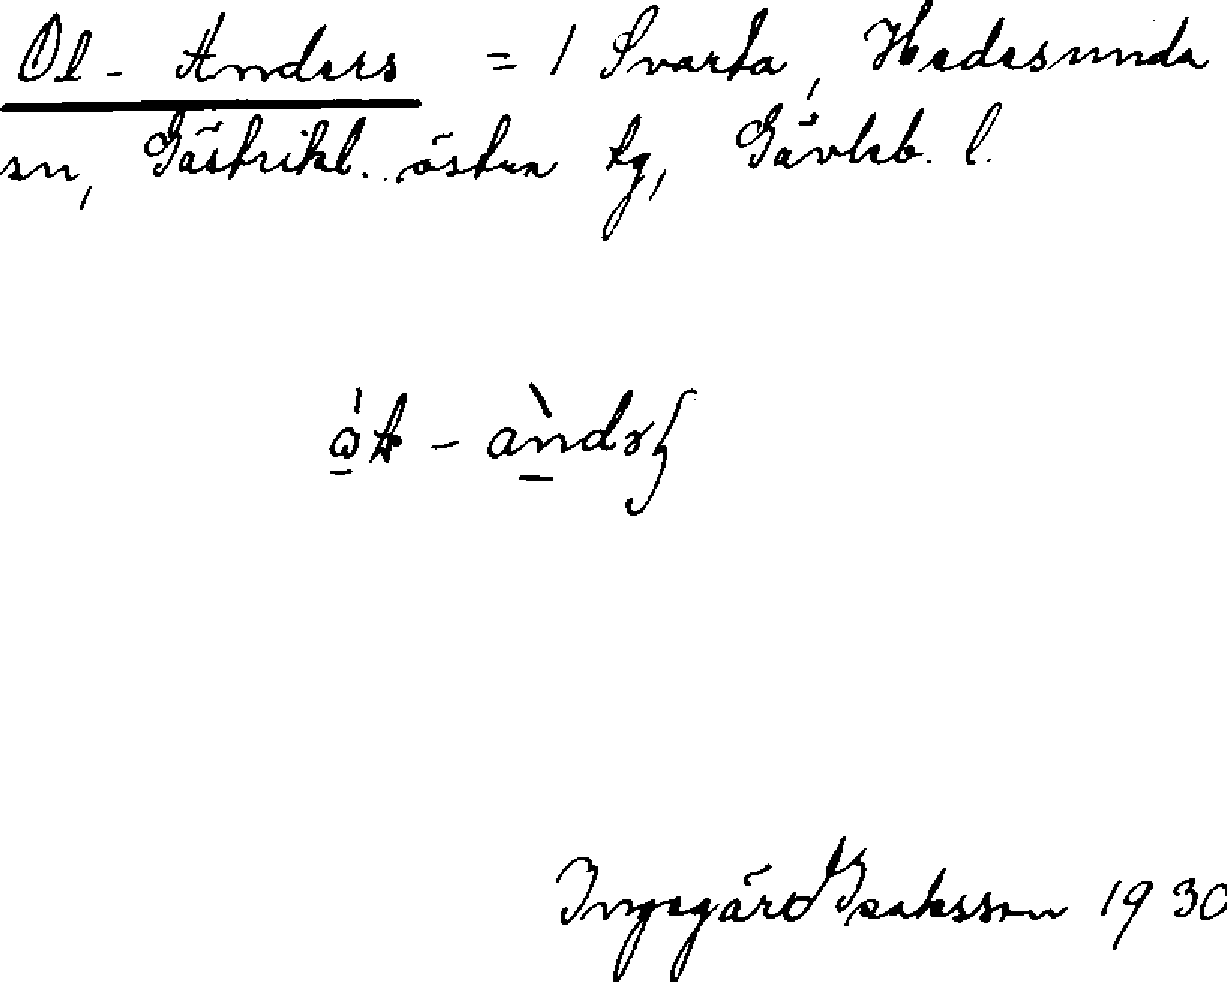 Ol - Anders = 1 Svarta, Hedesunda
sn, Gästrikl. östra tg, Gävleb. l.
Ingegärd Isaksson 1930